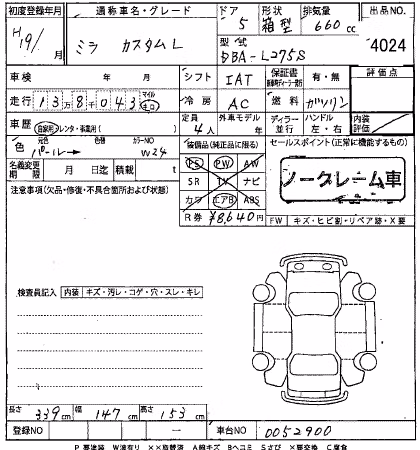 初度登録年月 通称車名・グレード ドア 形状 排気量 出品NO.
H19/ 月 ミラ カスタムL 5 箱型 660 cc 4024
型式 DBA-L275S
車検 年 月 シフト IAT 保証書 有・無 評価点
走行 138043 マイル キロ 冷房 AC 燃料 ガソリン
車歴 自家用・レンタ・事業用( ) 定員 4人 外車モデル年 ディラー 並行 ハンドル 左・右 内装評価
色 元色 色替 カラーNO パール W24
装備品(純正品に限る) セールスポイント(正常に機能する)
PS PW AW
名義変更期限 月 日迄 積載 t SR TV ナビ ノークレーム車
注意事項(欠品・修復・不具合箇所および状態) カワ エアB ABS
R券 ¥8,640 FW キズ・ヒビ割・リペア跡・X要
検査員記入 内装 キズ・汚レ・コゲ・穴・スレ・キレ
長さ 339 cm 幅 147 cm 高さ 153 cm
登録NO 一 車台NO 0052900
P 要塗装 W波有リ ××取替済 A線キズ Bヘコミ Sさび ×要交換 C腐食